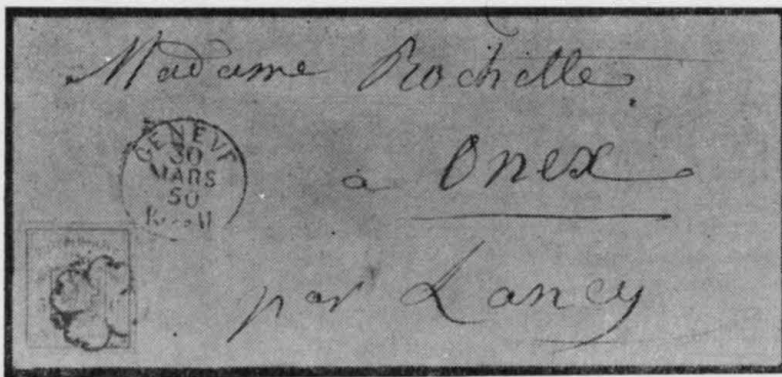 Madame Rochette
GENÈVE
30
MARS
50
à Onex
par Lancy